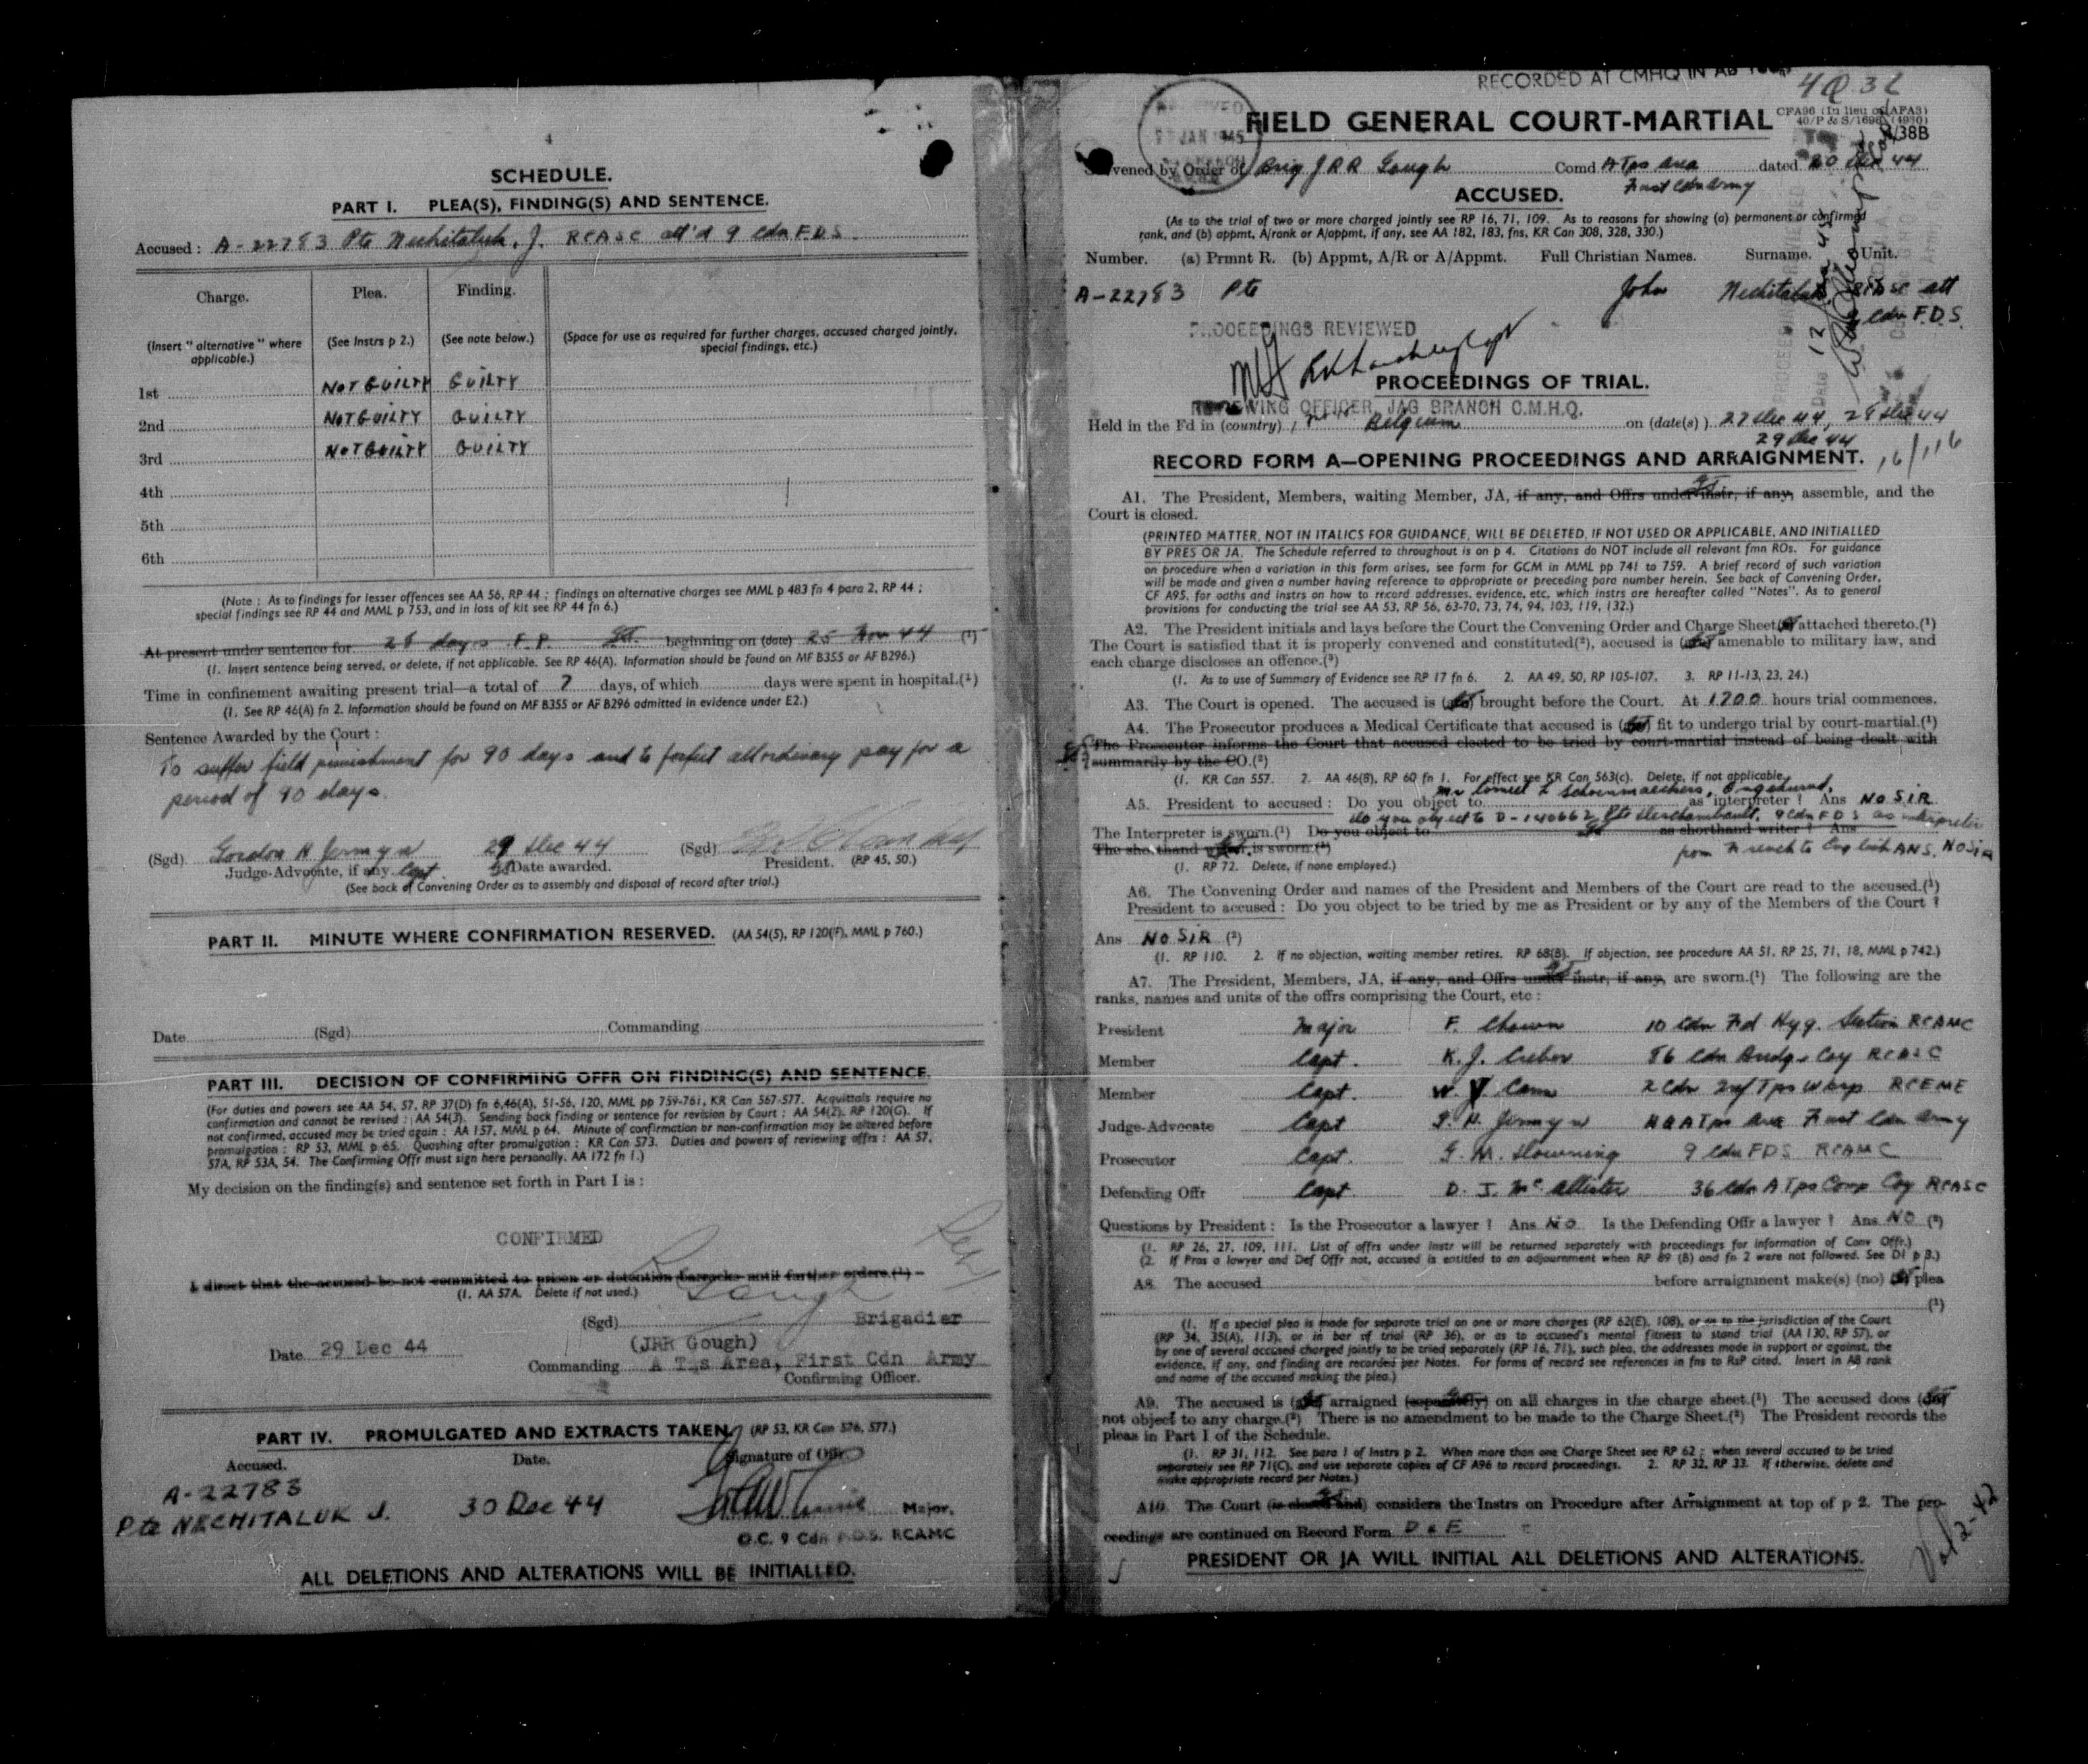 4
SCHEDULE.
PART I. PLEA(S), FINDING(S) AND SENTENCE.
Accused : A-22783 Pte Nechitaluk, J. RCASC att'd 9 Cdn F.D.S.
Charge. Plea. Finding.
(Insert "alternative" where applicable.) (See Instrs p 2.) (See note below.) (Space for use as required for further charges, accused charged jointly, special findings, etc.)
1st NOT GUILTY GUILTY
2nd NOT GUILTY GUILTY
3rd NOT GUILTY GUILTY
4th
5th
6th
(Note : As to findings for lesser offences see AA 56, RP 44 ; findings on alternative charges see MML p 483 fn 4 para 2, RP 44 ;
special findings see RP 44 and MML p 753, and in loss of kit see RP 44 fn 6.)
At present under sentence for 28 days F.P. beginning on (date) 25 Nov 44 (¹)
(1. Insert sentence being served, or delete, if not applicable. See RP 46(A). Information should be found on MF B355 or AF B296.)
Time in confinement awaiting present trial—a total of 7 days, of which days were spent in hospital.(¹)
(1. See RP 46(A) fn 2. Information should be found on MF B355 or AF B296 admitted in evidence under E2.)
Sentence Awarded by the Court :
To suffer field punishment for 90 days and to forfeit all ordinary pay for a
period of 90 days.
(Sgd) Gordon H Jermyn 29 Dec 44 (Sgd)
Judge-Advocate, if any Capt. Date awarded. President. (RP 45, 50.)
(See back of Convening Order as to assembly and disposal of record after trial.)
PART II. MINUTE WHERE CONFIRMATION RESERVED. (AA 54(5), RP 120(F), MML p 760.)
Date (Sgd) Commanding
PART III. DECISION OF CONFIRMING OFFR ON FINDING(S) AND SENTENCE.
(For duties and powers see AA 54, 57, RP 37(D) fn 6,46(A), 51-56, 120, MML pp 759-761, KR Can 567-577. Acquittals require no
confirmation and cannot be revised : AA 54(3). Sending back finding or sentence for revision by Court : AA 54(2), RP 120(G). If
not confirmed, accused may be tried again : AA 157, MML p 64. Minute of confirmation or non-confirmation may be altered before
promulgation : RP 53, MML p 65. Quashing after promulgation : KR Can 573. Duties and powers of reviewing offrs : AA 57,
57A, RP 53A, 54. The Confirming Offr must sign here personally. AA 172 fn 1.)
My decision on the finding(s) and sentence set forth in Part I is :
CONFIRMED
I direct that the accused be not committed to prison or detention barracks until further orders.(¹)
(1. AA 57A. Delete if not used.)
(Sgd) Gough Brigadier
Date 29 Dec 44 (JRR Gough)
Commanding A Tps Area, First Cdn Army
Confirming Officer.
PART IV. PROMULGATED AND EXTRACTS TAKEN. (RP 53, KR Can 576, 577.)
Accused. Date. Signature of Offr
A-22783
Pte NECHITALUK J. 30 Dec 44 Major.
O.C. 9 Cdn F.D.S. RCAMC
ALL DELETIONS AND ALTERATIONS WILL BE INITIALLED.
RECORDED AT CMHQ IN
FIELD GENERAL COURT-MARTIAL
CFA96 (In lieu of AFA3)
40/P & S/1698 (4930)
JAN 1945
Convened by Order of Brig J R R Gough Comd A Tps Area dated 20 Dec 44
First Cdn Army
ACCUSED.
(As to the trial of two or more charged jointly see RP 16, 71, 109. As to reasons for showing (a) permanent or confirmed
rank, and (b) appmt, A/rank or A/appmt, if any, see AA 182, 183, fns, KR Can 308, 328, 330.)
Number. (a) Prmnt R. (b) Appmt, A/R or A/Appmt. Full Christian Names. Surname. Unit.
A-22783 Pte John Nechitaluk RCASC att
9 Cdn F.D.S.
PROCEEDINGS REVIEWED
PROCEEDINGS OF TRIAL.
REVIEWING OFFICER, JAG BRANCH C.M.H.Q.
Held in the Fd in (country) Belgium on (date(s)) 27 Dec 44, 28 Dec 44
29 Dec 44
RECORD FORM A—OPENING PROCEEDINGS AND ARRAIGNMENT.
16/116
A1. The President, Members, waiting Member, JA, if any, and Offrs under instr, if any, assemble, and the
Court is closed.
(PRINTED MATTER, NOT IN ITALICS FOR GUIDANCE, WILL BE DELETED, IF NOT USED OR APPLICABLE, AND INITIALLED
BY PRES OR JA. The Schedule referred to throughout is on p 4. Citations do NOT include all relevant fmn ROs. For guidance
on procedure when a variation in this form arises, see form for GCM in MML pp 741 to 759. A brief record of such variation
will be made and given a number having reference to appropriate or preceding para number herein. See back of Convening Order,
CF A95, for oaths and instrs on how to record addresses, evidence, etc, which instrs are hereafter called "Notes". As to general
provisions for conducting the trial see AA 53, RP 56, 63-70, 73, 74, 94, 103, 119, 132.)
A2. The President initials and lays before the Court the Convening Order and Charge Sheet attached thereto.(¹)
The Court is satisfied that it is properly convened and constituted(²), accused is amenable to military law, and
each charge discloses an offence.(³)
(1. As to use of Summary of Evidence see RP 17 fn 6. 2. AA 49, 50, RP 105-107. 3. RP 11-13, 23, 24.)
A3. The Court is opened. The accused is brought before the Court. At 1700 hours trial commences.
A4. The Prosecutor produces a Medical Certificate that accused is fit to undergo trial by court-martial.(¹)
The Prosecutor informs the Court that accused elected to be tried by court-martial instead of being dealt with
summarily by the CO.(²)
(1. KR Can 557. 2. AA 46(8), RP 60 fn 1. For effect see KR Can 563(c). Delete, if not applicable.)
A5. President to accused : Do you object to as interpreter ? Ans NO SIR
do you object to D-140662 Pte 9 Cdn FDS as interpreter
The Interpreter is sworn.(¹) Do you object to as shorthand writer ? Ans
The shorthand writer is sworn.(¹) from French to English ANS. NO SIR
(1. RP 72. Delete, if none employed.)
A6. The Convening Order and names of the President and Members of the Court are read to the accused.(¹)
President to accused : Do you object to be tried by me as President or by any of the Members of the Court ?
Ans NO SIR (²)
(1. RP 110. 2. If no objection, waiting member retires. RP 68(B). If objection, see procedure AA 51, RP 25, 71, 18, MML p 742.)
A7. The President, Members, JA, if any, and Offrs under instr, if any, are sworn.(¹) The following are the
ranks, names and units of the offrs comprising the Court, etc :
President Major F. Chown 10 Cdn Fd Hyg. Section RCAMC
Member Capt. K. J. 86 Cdn Bridge Coy RCASC
Member Capt. W. Cann 2 Cdn Inf Tps Wksp RCEME
Judge-Advocate Capt G. H. Jermyn HQ A Tps Area First Cdn Army
Prosecutor Capt. G. M. Downing 9 Cdn FDS RCAMC
Defending Offr Capt D. J. McAllister 36 Cdn A Tps Comp Coy RCASC
Questions by President : Is the Prosecutor a lawyer ? Ans NO Is the Defending Offr a lawyer ? Ans NO (²)
(1. RP 26, 27, 109, 111. List of offrs under instr will be returned separately with proceedings for information of Conv Offr.)
(2. If Pros a lawyer and Def Offr not, accused is entitled to an adjournment when RP 89 (B) and fn 2 were not followed. See D1 p 3.)
A8. The accused before arraignment make(s) (no) plea
(¹)
(1. If a special plea is made for separate trial on one or more charges (RP 62(E), 108), or as to the jurisdiction of the Court
(RP 34, 35(A), 113), or in bar of trial (RP 36), or as to accused's mental fitness to stand trial (AA 130, RP 57), or
by one of several accused charged jointly to be tried separately (RP 16, 71), such plea, the addresses made in support or against, the
evidence, if any, and finding are recorded per Notes. For forms of record see references in fns to RsP cited. Insert in A8 rank
and name of the accused making the plea.)
A9. The accused is arraigned (separately) on all charges in the charge sheet.(¹) The accused does
not object to any charge.(²) There is no amendment to be made to the Charge Sheet.(²) The President records the
pleas in Part I of the Schedule.
(1. RP 31, 112. See para 1 of Instrs p 2. When more than one Charge Sheet see RP 62 ; when several accused to be tried
separately see RP 71(C), and use separate copies of CF A96 to record proceedings. 2. RP 32, RP 33. If otherwise, delete and
make appropriate record per Notes.)
A10. The Court (is closed and) considers the Instrs on Procedure after Arraignment at top of p 2. The pro-
ceedings are continued on Record Form D & E
PRESIDENT OR JA WILL INITIAL ALL DELETIONS AND ALTERATIONS.